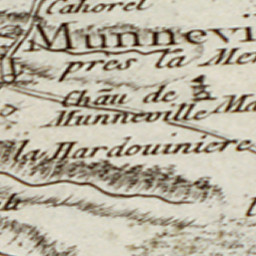 Cahorel
Munnevi
pres la Me
Chãu de
Munneville Ma
la Hardouiniere